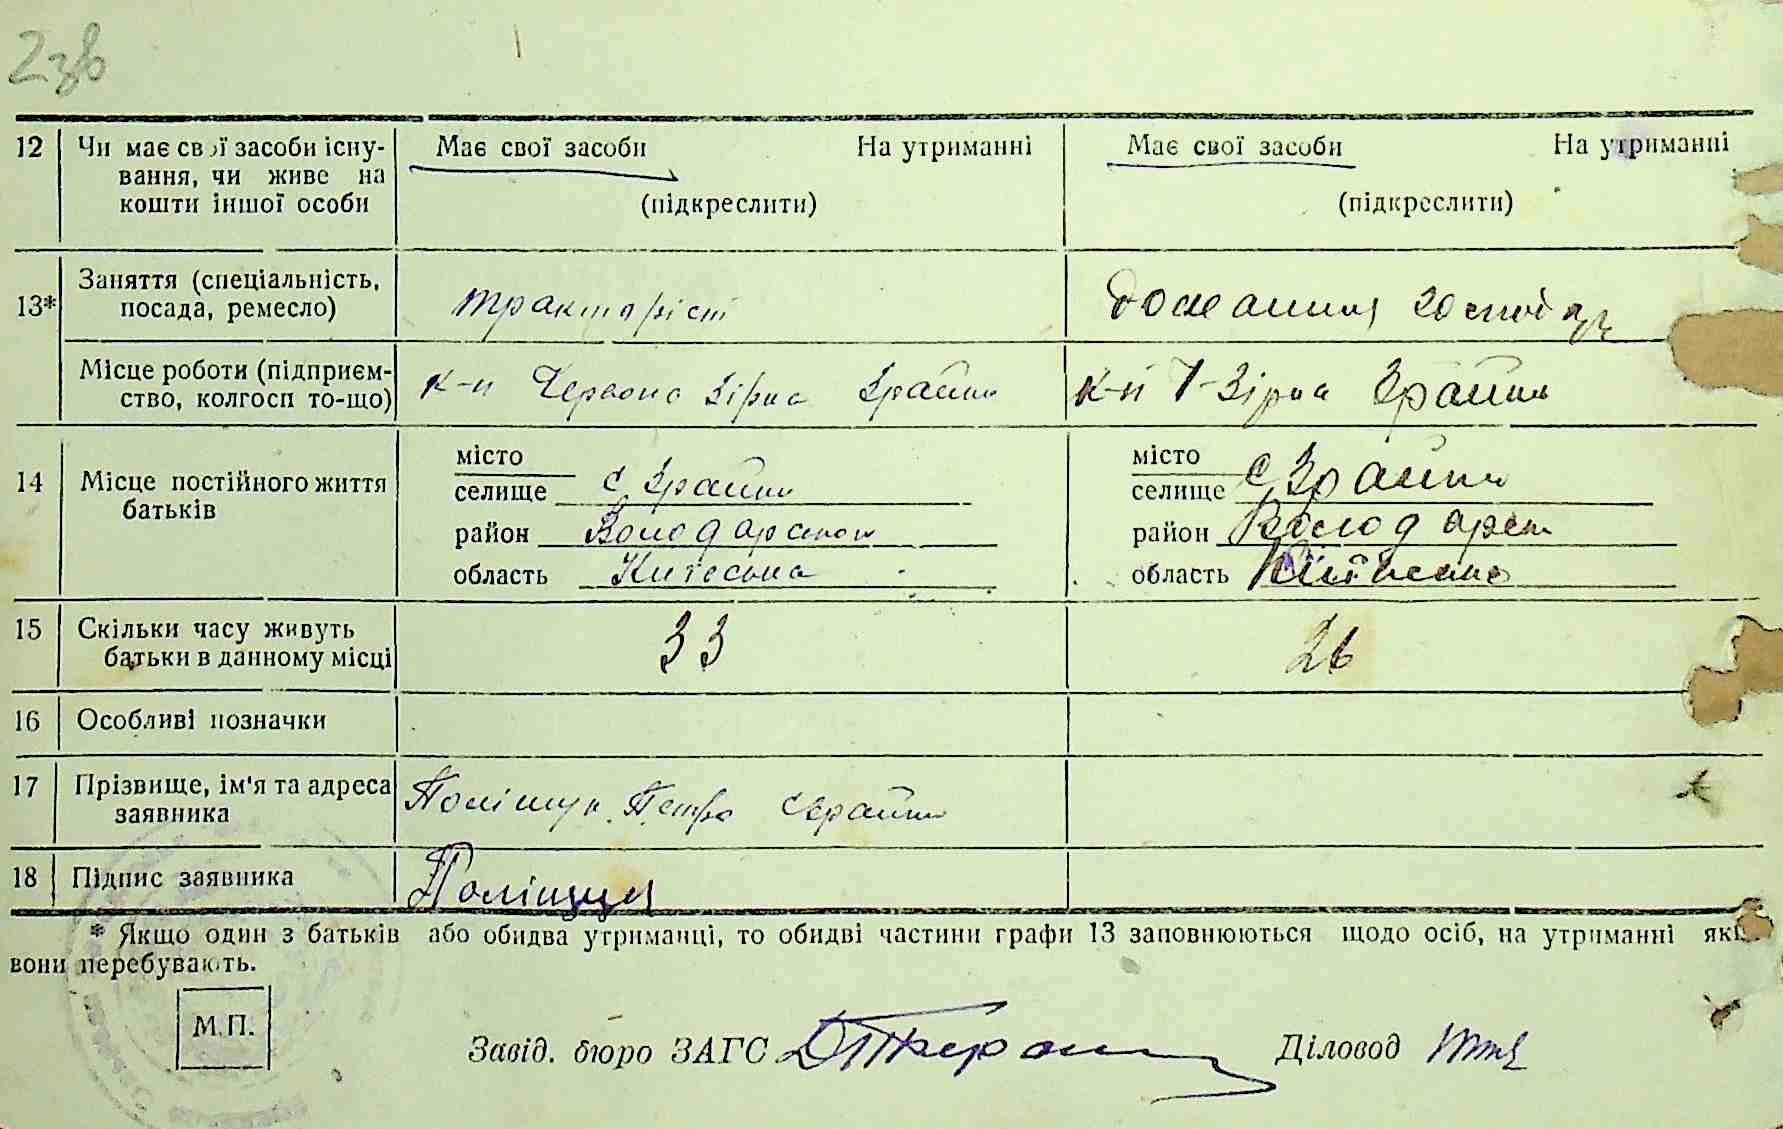 2зв
12 Чи має свої засоби існу- Має свої засоби На утриманні Має свої засоби На утриманні
вання, чи живе на
кошти іншої особи (підкреслити) (підкреслити)
13* Заняття (спеціальність,
посада, ремесло) тракторіст домашня господар
Місце роботи (підприєм-
ство, колгосп то-що) к-п Червона Зірка Зрайки к-п Ч-Зірка Зрайки
14 Місце постійного життя
батьків
місто місто
селище с Зрайки селище с Зрайки
район Володарськой район Володарск
область Київська область Київська
15 Скільки часу живуть
батьки в данному місці 33 26
16 Особливі позначки
17 Прізвище, ім'я та адреса
заявника Поліщук Петро с Зрайки
18 Підпис заявника Поліщук
* Якщо один з батьків або обидва утриманці, то обидві частини графи 13 заповнюються щодо осіб, на утриманні яких
вони перебувають.
М.П.
Завід. бюро ЗАГС Діловод